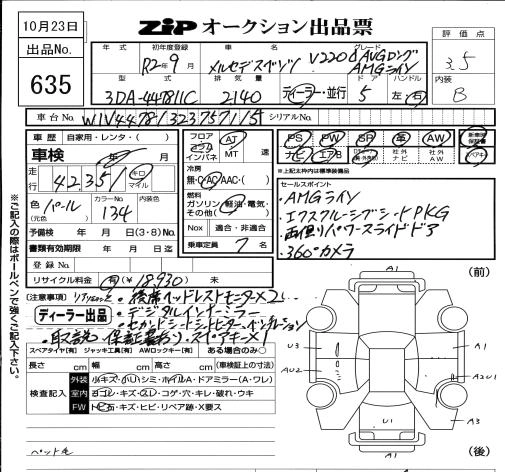 10月23日
出品No.
635
ZIP オークション出品票
評価点
3.5
内装
B
年式 初年度登録 車名 グレード
R2年9月 メルセデスベンツ V220d AVGロング AMGライン
型式 排気量 ドア ハンドル
3DA-447811C 2140 ディーラー・並行 5 左・右
車台No. W1V44781323757115 シリアルNo.
車歴 自家用・レンタ・( )
車検 年 月
走行 42351 キロ マイル
色 パール (元色) カラーNo. 134 内装色
予備検 年 月 日(3・8)No.
書類有効期限 年 月 日迄
登録No.
リサイクル料金 有(¥18,930) 未
フロア コラム インパネ AT MT 速
冷房 無・C・AC・AAC・( )
燃料 ガソリン・軽油・電気・その他( )
Nox 適合・非適合
乗車定員 7名
PS PW SR 革 AW
ナビ エアB 社外ナビ 社外AW
新車時保証書
スペアキー
*上記太枠内は標準装備品
セールスポイント
・AMGライン
・エクスクルーシブシートPKG
・両側パワースライドドア
・360°カメラ
(注意事項)
・後席ヘッドレストモニター×2
ディーラー出品
・デジタルインナーミラー
・セカンドシートシートヒーター、ベンチレーション
・取説、保証書有り、スペアキー×1
スペアタイヤ[有] ジャッキ工具[有] AWロックキー[有] ある場合のみ○
長さ cm 幅 cm 高さ cm (車検証上の寸法)
検査記入
外装 小キズ・小U・シミ・ホイルA・ドアミラー(A・ワレ)
室内 ヨゴレ・キズ・スレ・コゲ・穴・キレ・破れ・ウキ
FW トビ石・キズ・ヒビ・リペア跡・X要ス
ペット毛
※ご記入の際はボールペンで強くご記入下さい。
(前)
A1
U3
A1
AU2
A2U1
U1
A3
A1
(後)